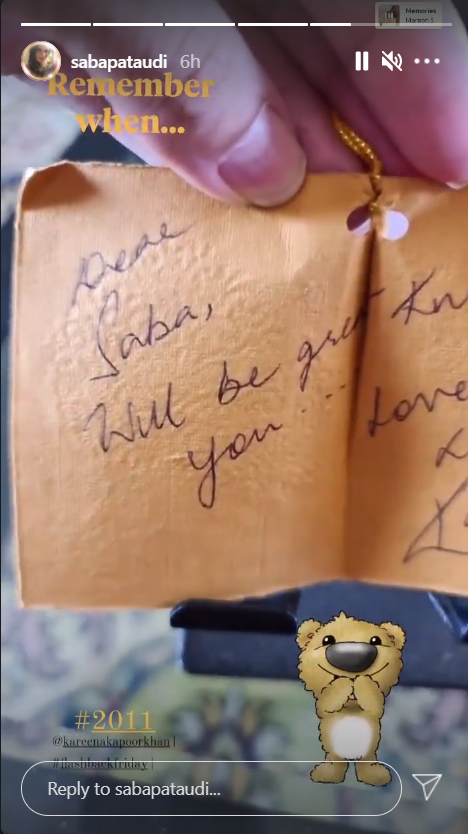 Memories
Maroon 5
sabapataudi 6h
Remember
when...
Dear
Saba,
Will be great Kn
you... Love
#2011
@kareenakapoorkhan |
#flashbackfriday |
Reply to sabapataudi...